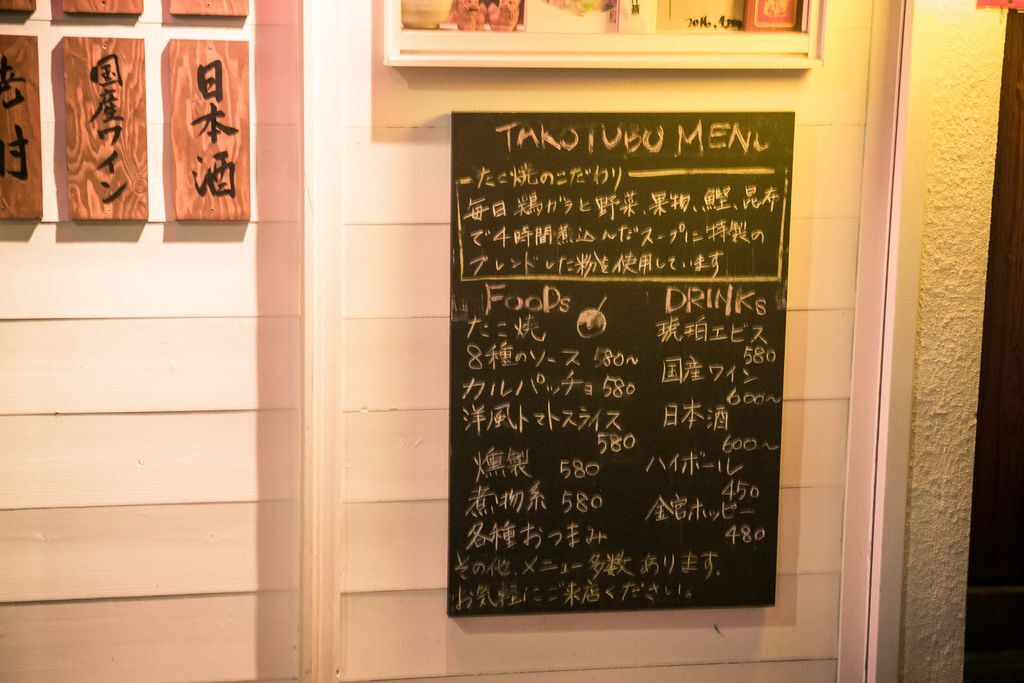 国産ワイン
日本酒
TAKOTUBO MENU
たこ焼のこだわり
毎日鶏ガラと野菜、果物、鰹、昆布
で4時間煮込んだスープに特製の
ブレンドした粉を使用しています
FOODs
たこ焼
8種のソース 580〜
カルパッチョ 580
洋風トマトスライス
580
燻製 580
煮物系 580
各種おつまみ
DRINKs
琥珀エビス
580
国産ワイン
600〜
日本酒
600〜
ハイボール
450
金宮ホッピー
480
その他、メニュー多数あります。
お気軽にご来店ください。